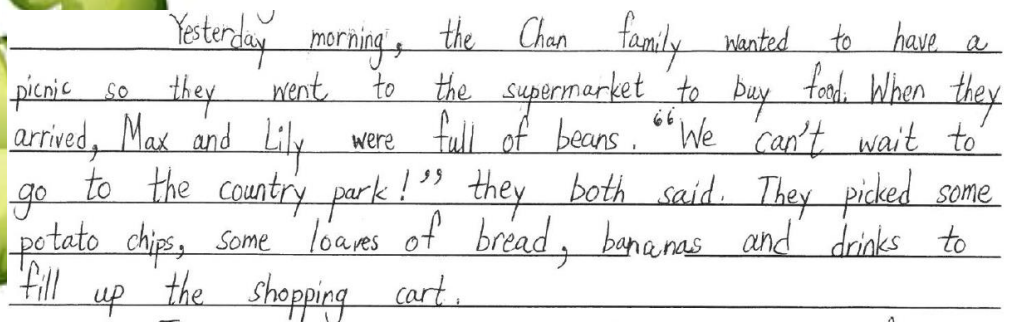 Yesterday morning, the Chan family wanted to have a
picnic so they went to the supermarket to buy food. When they
arrived, Max and Lily were full of beans. "We can't wait to
go to the country park!" they both said. They picked some
potato chips, some loaves of bread, bananas and drinks to
fill up the shopping cart.